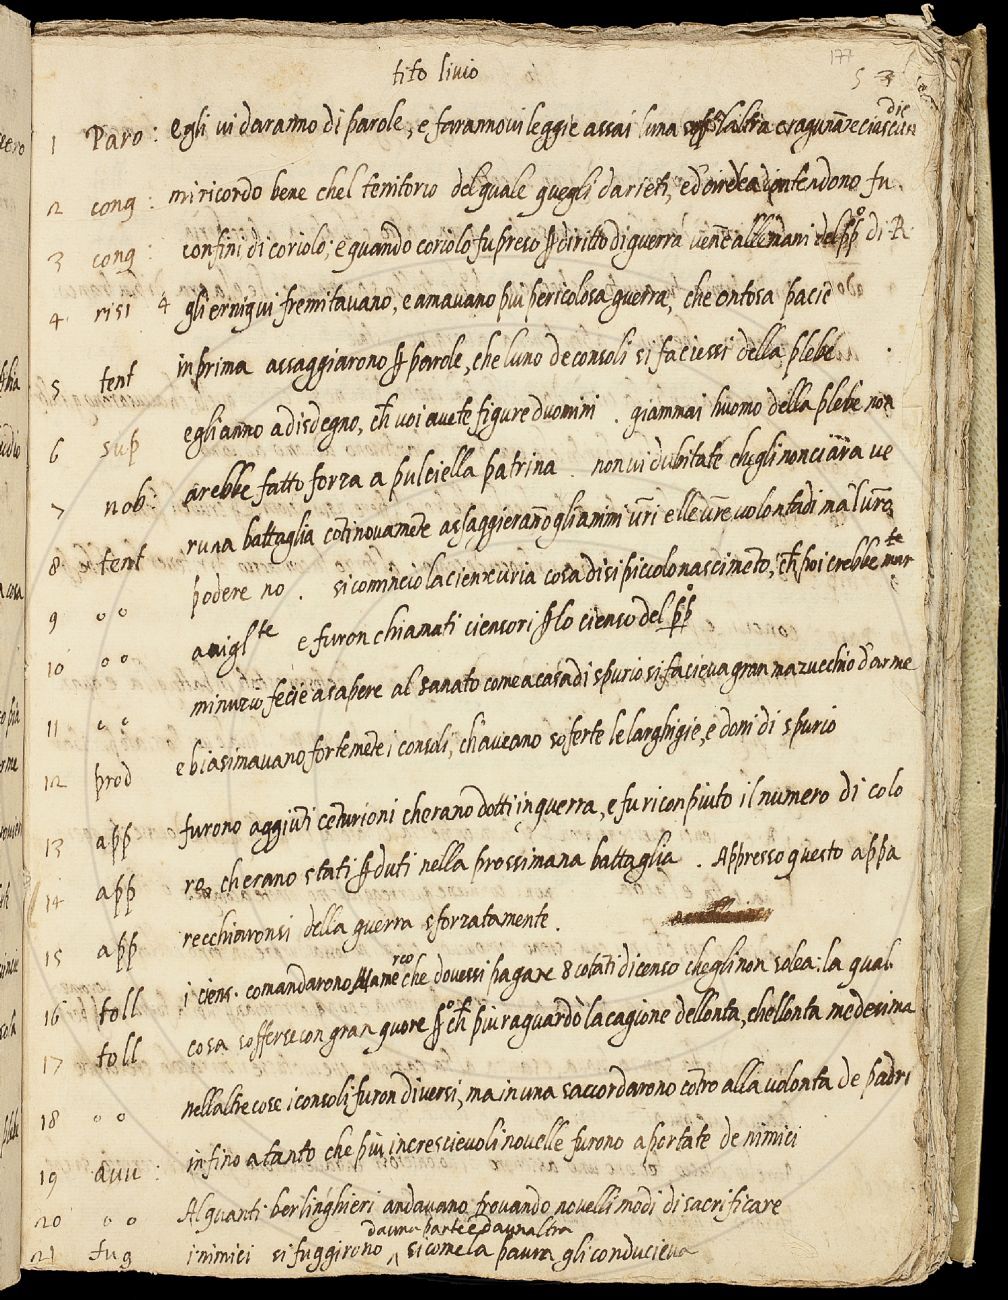 177
tito livio
5 3
1 Paro: egli vi daranno di parole, e farannovi leggie assai luna laltra e ragunāze ciascun
die
2 cong: mi ricordo bene chel territorio del quale quegli darieti, ed contendono fu
3 cong: confini di coriolo; e quando coriolo fu preso ꝑ diritto di guerra vene alle mani del pp° di R.
4 risi 4 gli ernigi vi fremitavano, e amavano piu pericolosa guerra, che ontosa pacie
5 tent in prima assaggiarono ꝑ parole, che luno de consoli si faciessi della plebe
6 sup egli anno a disdegno, ch̄ voi avete figure duomini . giammai huomo della plebe non
7 nob: arebbe fatto forza a pulciella patrina . non vi dubitate che gli non ciāra ve
8 tent runa battaglia cōtinovamēte assaggierāno gli animi vr̄i e lle vr̄e volonta di mal vr̄o
9 o o podere no . si comincio la cienxuria cosa di si piccolo nascimēto, ch̄ poi crebbe mar
te
10 o o a migl te e furon chiamati ciensori ꝑ lo cienso del pp°
11 o o minuzio fecie a sapere al sanato come a casa di spurio si facieva gran mazucchio darme
12 prod e biasimavano fortemēte i consoli, ch̄ aveano soferte le larghigie, e doni di spurio
13 app furono aggiūti cēturioni cherano dotti in guerra, e fu riconpiuto il numero di colo
14 app ro, cherano stati ꝑduti nella prossimana battaglia . Appresso questo appa
15 app recchiaronsi della guerra sforzatamente .
16 toll i ciens. comandarono Mame rco che dovessi pagare 8 cotāti di censo che gli non solea: la qual
17 toll cosa sofferse con gran quore ꝑ° ch̄ piu raguardò la cagione dellonta, chellonta medesima
18 o o nellaltre cose i consoli furon diversi, ma in una saccordarono cōtro alla volonta de padri
19 avv: infino a tanto che piu increscievoli novelle furono aportate de nimici
20 o o Alquanti berlinghieri andavano trovando novelli modi di sacrificare
dauna parte e daunaltra
21 fug i nimici si fuggirono ^ si come la paura gli conducieva